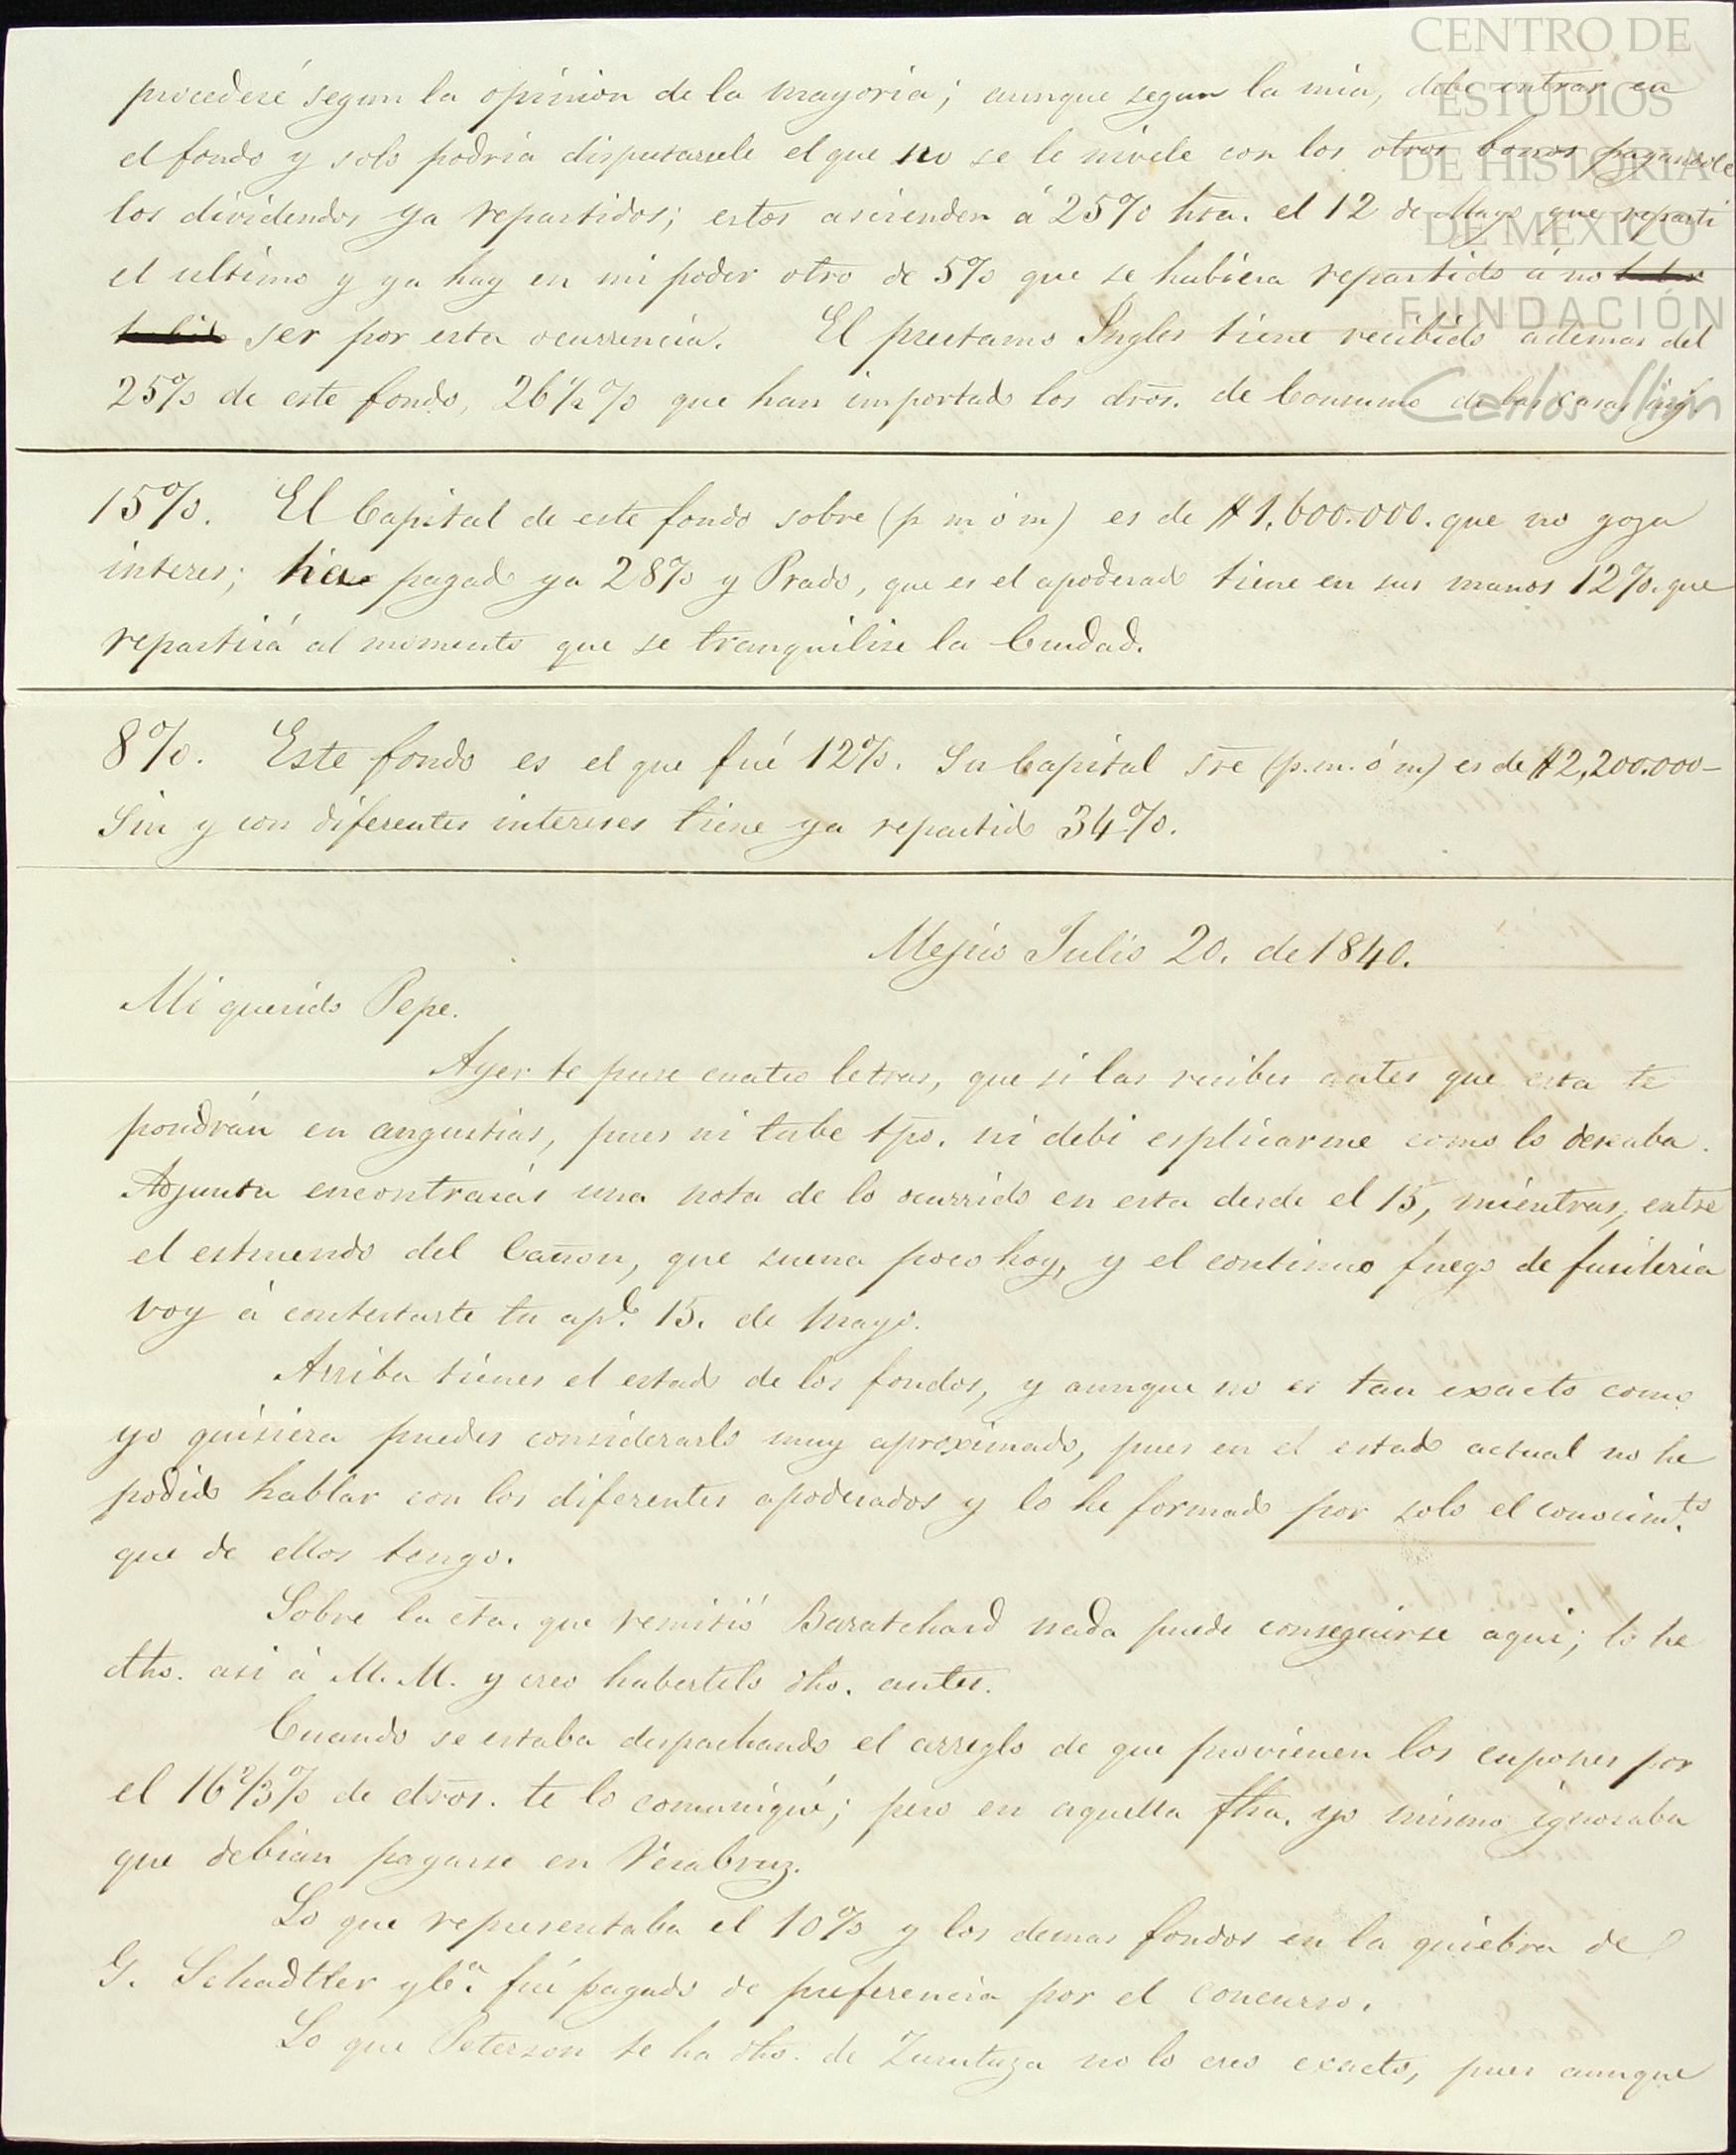 CENTRO DE
ESTUDIOS
DE HISTORIA
DE MÉXICO
FUNDACIÓN
Carlos Slim
procederé segun la opinion de la mayoria; aunque segun la mia, debe entrar en
el fondo y solo podria disputarsele el que no se le nivele con los otros bonos pagandole
los dividendos ya repartidos; estos ascienden á 25% hta. el 12 de Mayo que repartí
el ultimo y ya hay en mi poder otro de 5% que se hubiera repartido á no
ser por esta ocurrencia. El prestamo Ingles tiene recibido ademas del
25% de este fondo, 26½% que han importado los dros. de Consumo de las casas ing.
15%. El Capital de este fondo sobre (p m ó m) es de $1,600.000. que no goza
interes; ha pagado ya 28% y Prado, que es el apoderado tiene en sus manos 12%. que
repartirá al momento que se tranquilise la Ciudad.
8%. Este fondo es el que fué 12%. Su Capital sre (p.m. ó m) es de $2,200.000-
Sin y con diferentes intereses tiene ya repartido 34%.
Mejico Julio 20. de 1840.
Mi querido Pepe.
Ayer te puse cuatro letras, que si las recibes antes que esta te
pondrán en angustias, pues ni tube tpo. ni debi esplicarme como lo deseaba.
Adjunta encontrarás una nota de lo ocurrido en esta desde el 15, mientras, entre
el estruendo del Cañon, que suena poco hoy, y el continuo fuego de fusileria
voy á contestarte tu ap.e 15. de Mayo.
Arriba tienes el estado de los fondos, y aunque no es tan exacto como
yo quisiera puedes considerarlo muy aproximado, pues en el estado actual no he
podido hablar con los diferentes apoderados y lo he formado por solo el conocim.to
que de ellos tengo.
Sobre la cta. que remitió Baratchard nada puede conseguirse aqui; lo he
dho. asi á M. M. y creo habertelo dho. antes.
Cuando se estaba despachando el arreglo de que provienen los cupones por
el 16⅔% de dros. te lo comuniqué; pero en aquella fha. yo mismo ignoraba
que debian pagarse en VeraCruz.
Lo que representaba el 10% y los demas fondos en la quiebra de
G. Schadtler y C.a fué pagado de preferencia por el concurso.
Lo que Peterson te ha dho. de Zurutuza no lo creo exacto, pues aunque